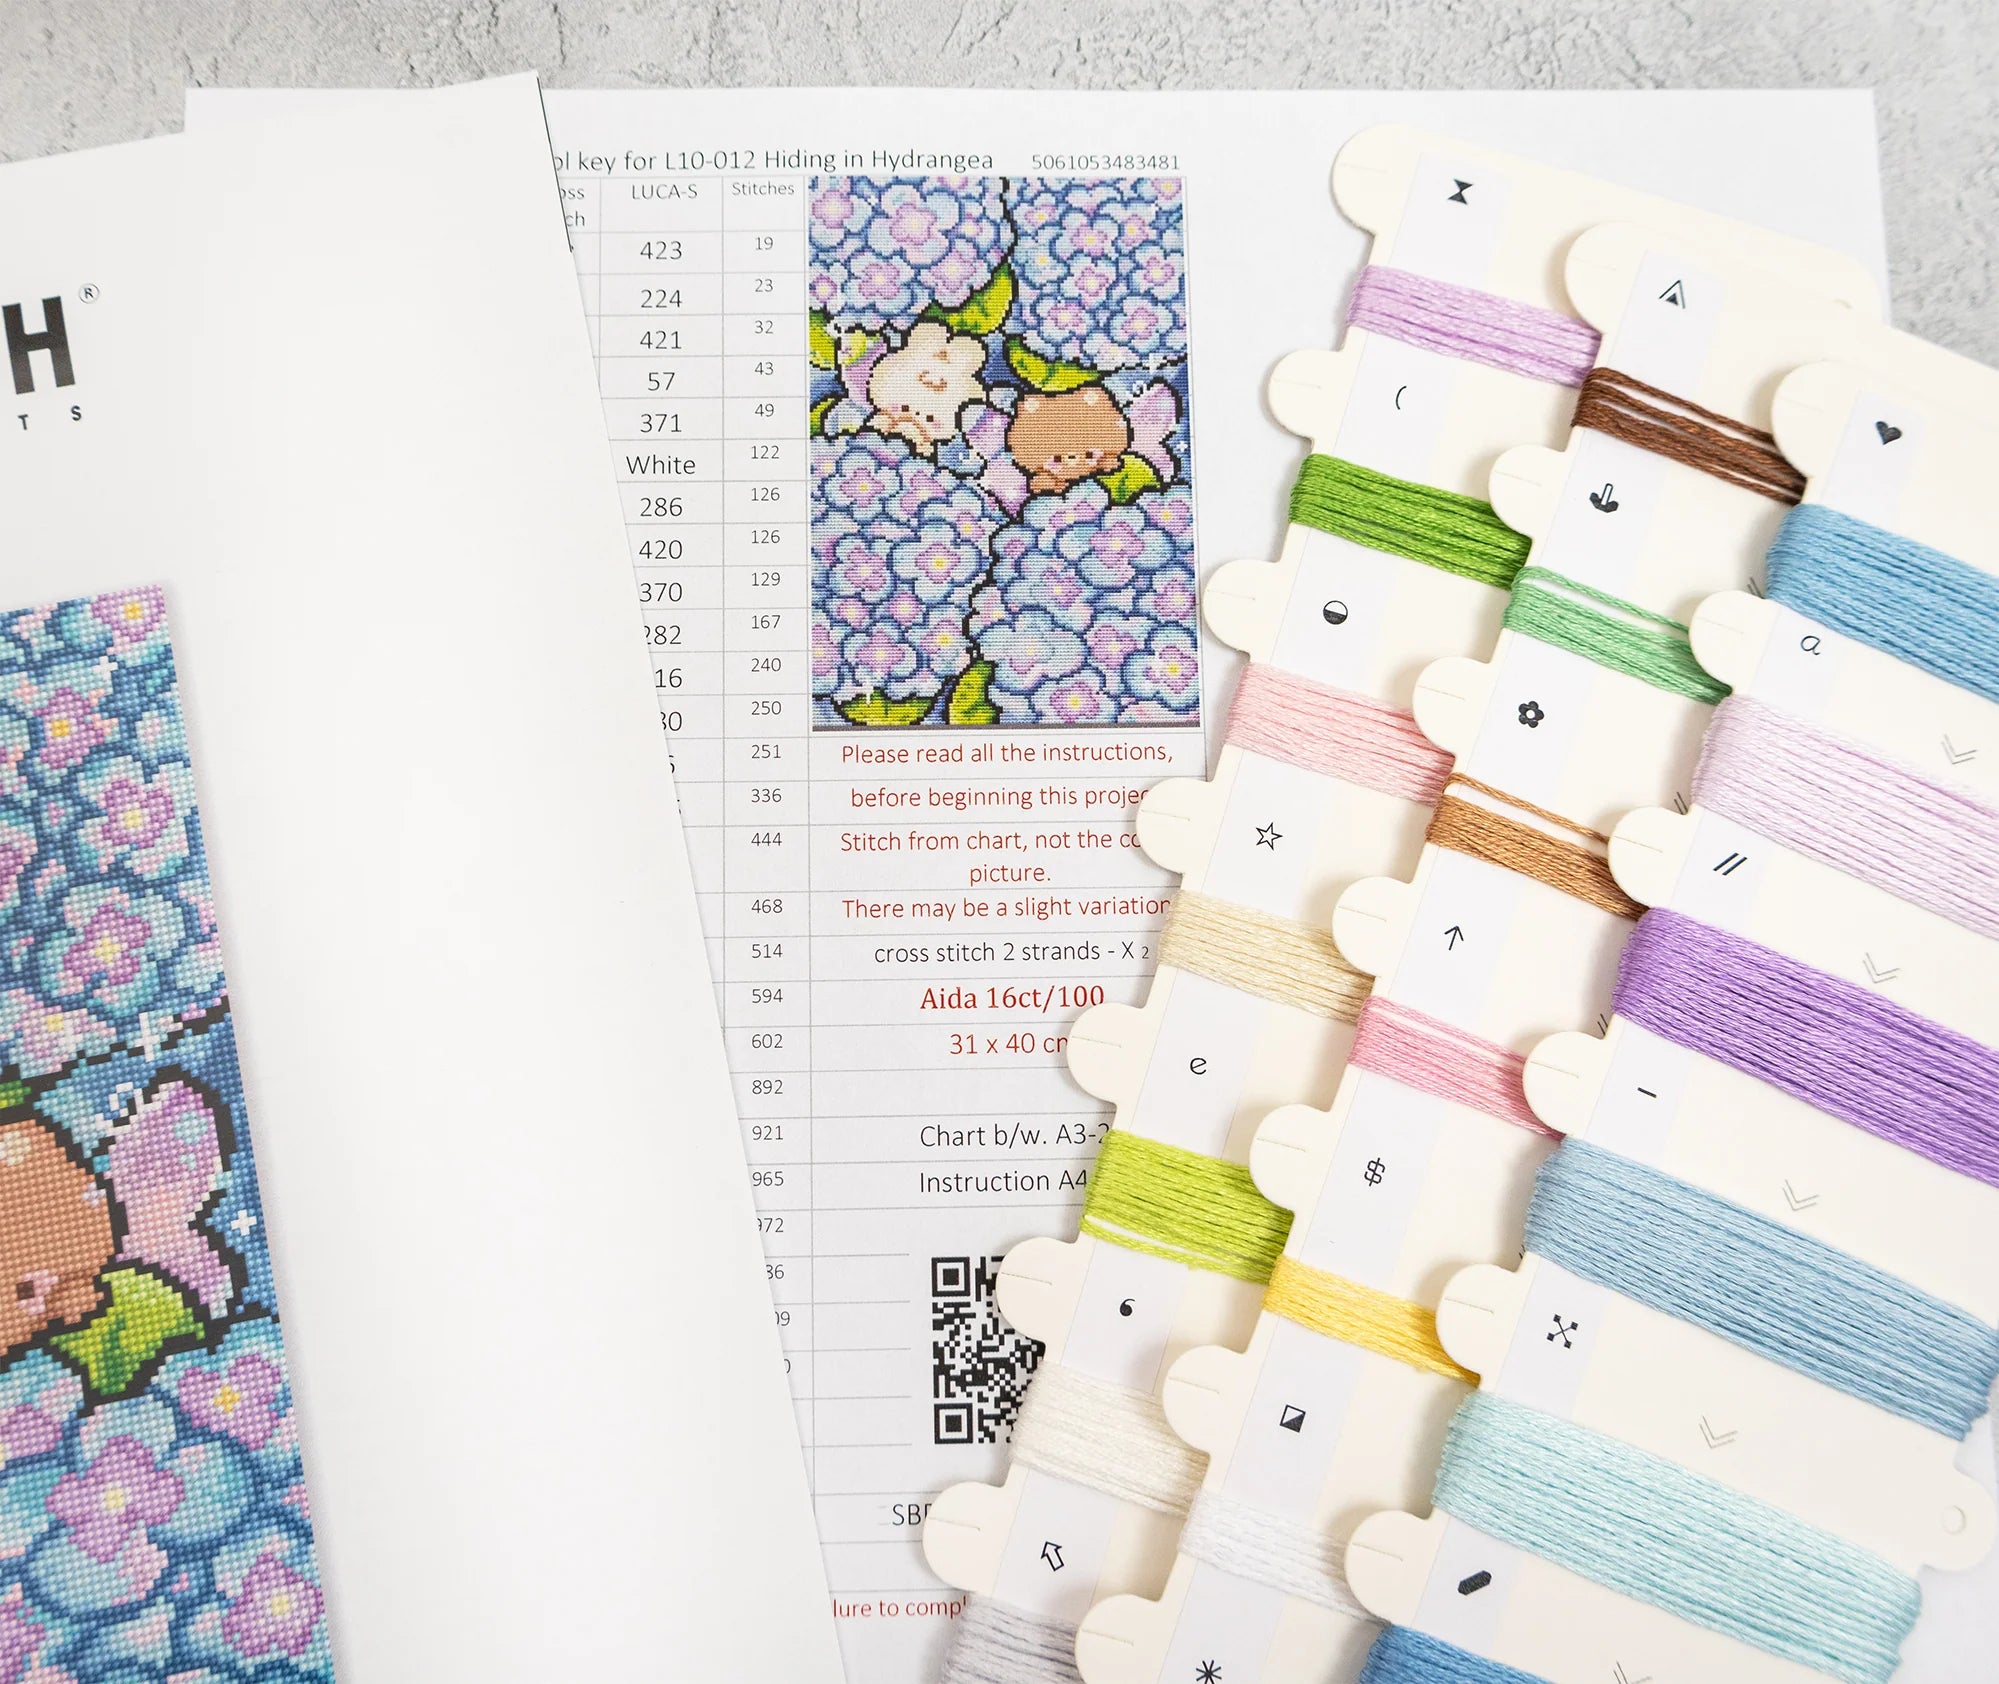 H ®
T S
key for L10-012 Hiding in Hydrangea 5061053483481
LUCA-S Stitches
423 19
224 23
421 32
57 43
371 49
White 122
286 126
420 126
370 129
282 167
16 240
30 250
251
336
444
468
514
594
602
892
921
965
972
Please read all the instructions,
before beginning this
Stitch from chart, not the
picture.
There may be a slight variation
cross stitch 2 strands - X 2
Aida 16ct/100
31 x 40
Chart b/w. A3-2
Instruction A4
to
a
e
$